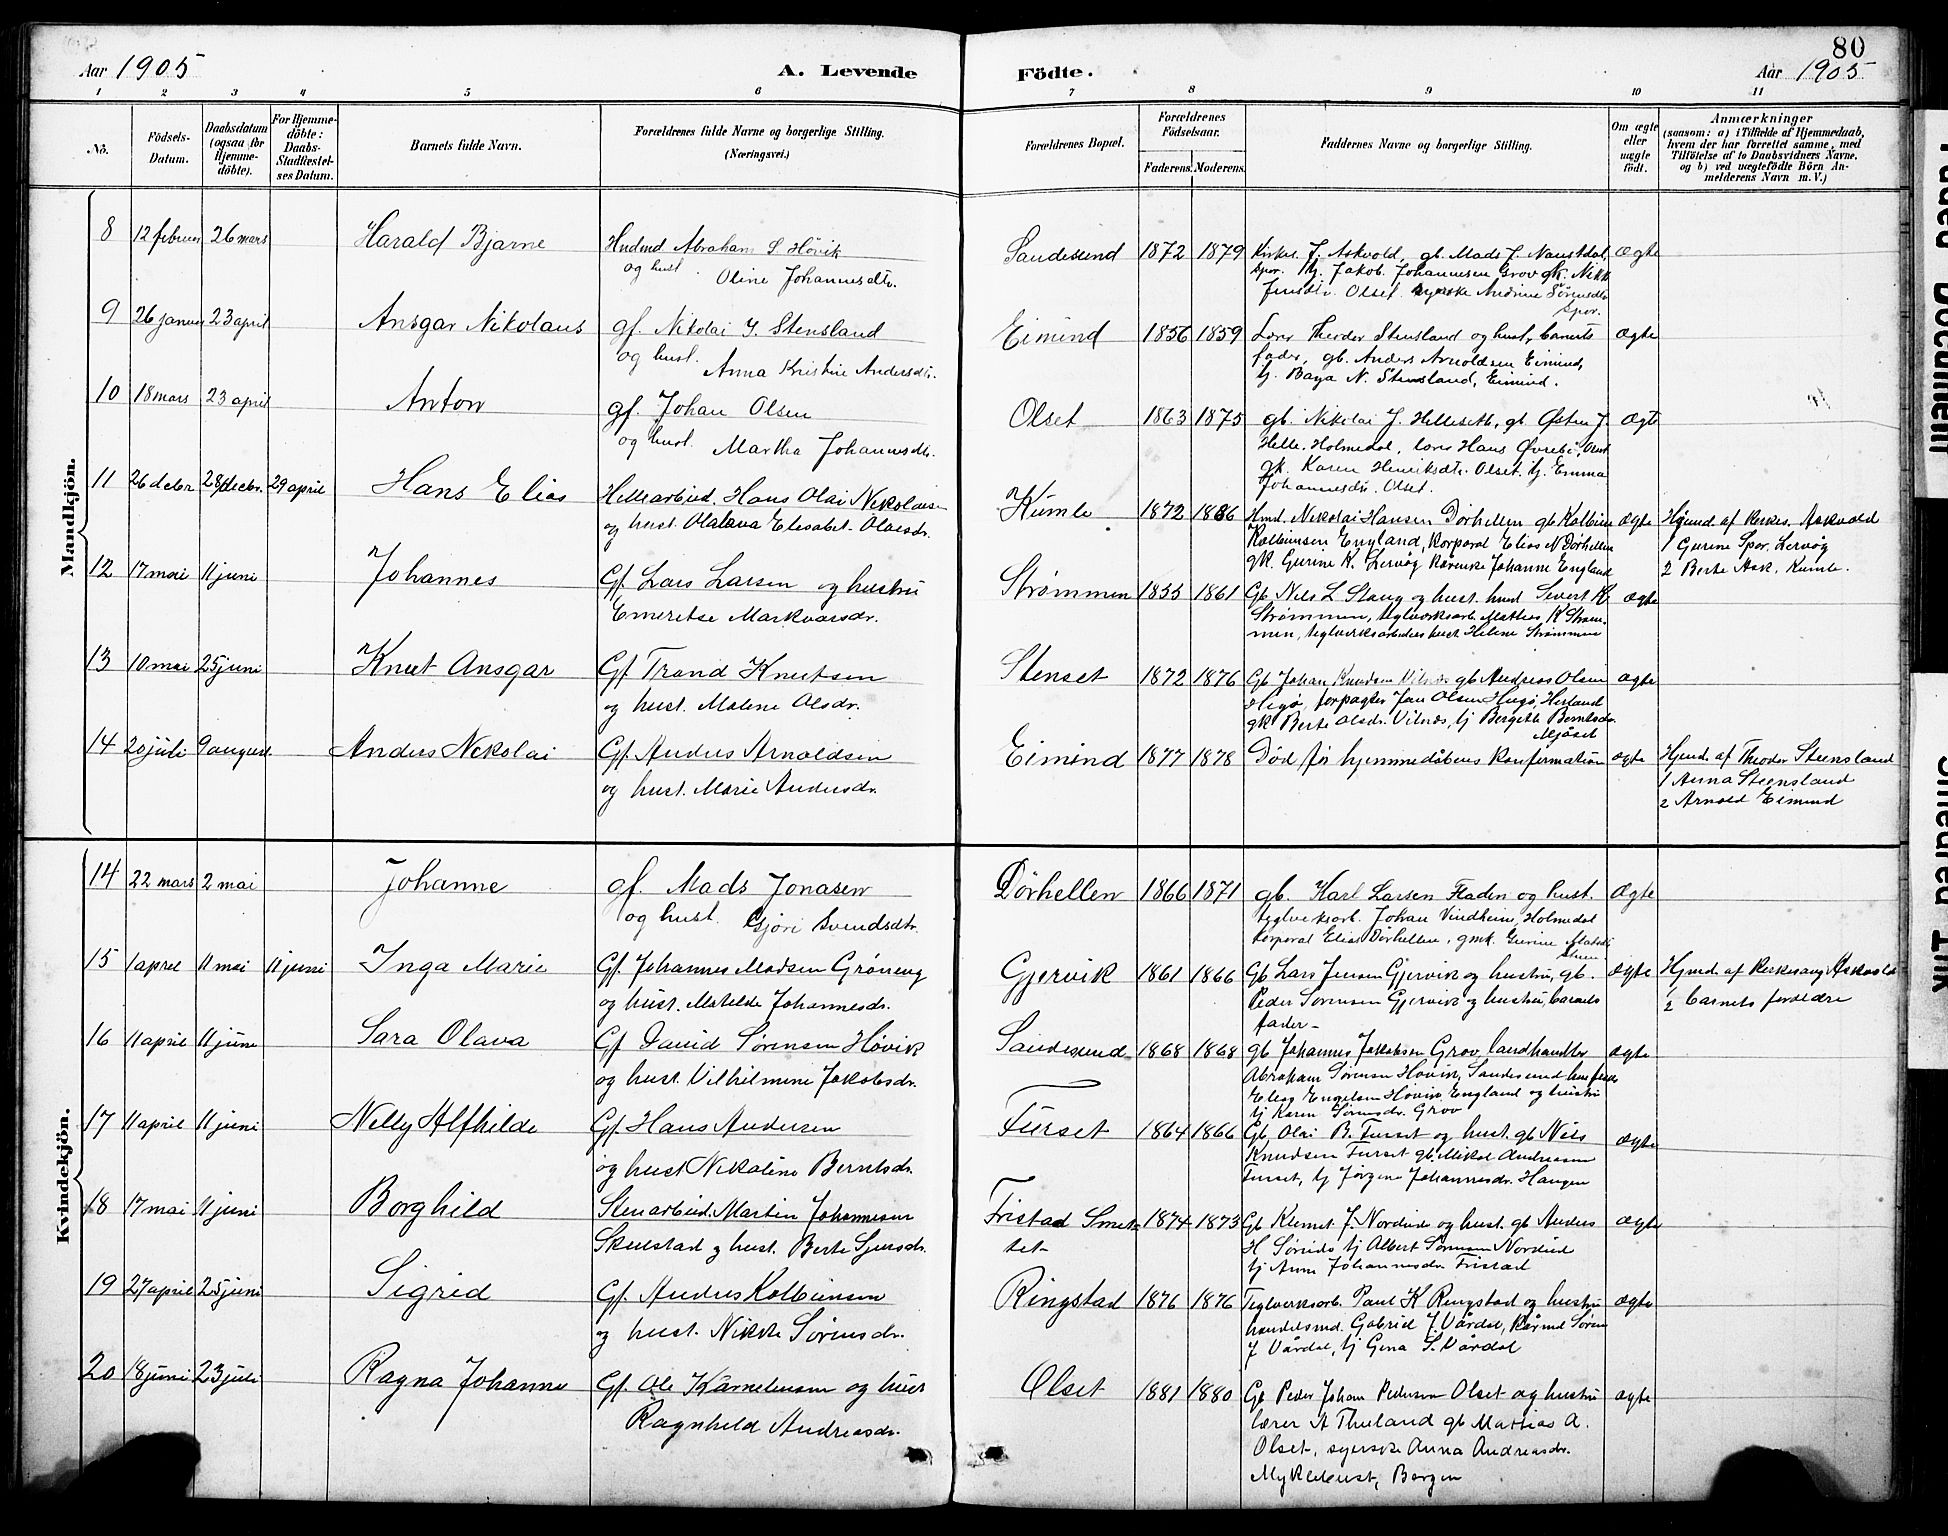 80
Aar 1905
A. Levende Födte.
Aar 1905
1 2 3 4 5 6 7 8 9 10 11
No.
Födsels-Datum.
Daabsdatum (ogsaa for Hjemmedöbte).
For Hjemmedöbte: Daabs-Stadfæstelses Datum.
Barnets fulde Navn.
Forældrenes fulde Navne og borgerlige Stilling. (Næringsvei.)
Forældrenes Bopæl.
Forældrenes Födselsaar.
Faderens. Moderens.
Faddernes Navne og borgerlige Stilling.
Om ægte eller uægte födt.
Anmærkninger
(saasom: a) i Tilfælde af Hjemmedaab, hvem der har forrettet samme, med Tilföielse af to Daabsvidners Navne, og b) ved uægtefödte Börn Anmelderens Navn m. V.)
Mandkjön.
8 12 februar 26 mars Harald Bjarne Abraham S. Høvik
og hust. Oline Johannesdtr.
Sandesund 1872 1879 Kirkes. J. Askvold, gb. Mads J. Naustdal,
tj. Jakob Johannesen Grov gk. Nikk.
Jensdtr. Olset. syerske Andrine Sørensdtr
Ægte
9 26 januar 23 april Ansgar Nikolaus gf. Nikolai J. Stensland
og hust. Anna Kristine Andersdtr.
Eimind 1856 1859 Lærer Theodor Stensland og hust, barnets
fader, gb. Anders Arnoldsen Eimind,
tj. Baya N. Stensland, Eimind.
Ægte
10 18 mars 23 april Anton gf. Johan Olsen
og hust. Martha Johannesdtr.
Olset 1863 1875 gb. Nikolai J. Helleseth, gb. Østen J.
Helle, Holmedal, lærer Hans Øvrebø, Olset
gk. Karen Henriksdtr. Olset. tj. Emma
Johannesdtr. Olset.
Ægte
11 26 decbr 28 decbr. 29 april Hans Elias Hellearbeid. Hans Olai Nikolaisen
og hust. Olalava Elisabet Olaisdr.
Kumle 1872 Hmd. Nikolai Hansen Dørhellen gb Kolbein
Kolbeinsen England, korporal Elias N Dørhellen
gk. Gurine K. Lervåg Johanne England
ægte
Hjmd. af Kirkes. Askvold
1 Gurine Spor. Lervåg
2 Berte Ask. Kumle.
12 17 mai 11 juni Johannes Gf. Lars Larsen og hustru
Emeretse Markvarsdr.
Strømmen 1855 1861 Gb. Nils L Stang og hust. husm. Sivert K.
Strømmen, teglverksarb. Mathias K Strømmen,
teglverksarbeiders hust Helene Strømmen
ægte
13 10 mai 25 juni Knut Ansgar Gf. Trond Knutsen
og hust. Malene Olsdr.
Stenset 1872 1876 Gb. Johan Knudsen Vilnes gb Andreas Olsen
forpagter Jan Olsen Hegø, Herland
gk Berte Olsdr. Vilnes, tj Bergithe Berntsdr.
Mjåset
ægte
14 20 juli 9 august Anders Nikolai Gf. Anders Arnoldsen
og hust. Marie Andersdr.
Eimind 1877 1878 Død før hjemmedåbens konfirmation
ægte
Hjmd. af Theodor Steensland
1 Anna Steensland
2 Arnold Eimind
Kvindekjön.
14 22 mars 2 mai Johanne gf. Mads Jonasen
og hust. Gjøri Svendsdtr.
Dörhellen 1866 1871 gb. Karl Larsen Fladen og hust.
teglverksarb. Johan Vindheim, Holmedal
korporal Elias Dørhellen, gmk. Gurine
Ægte
15 1 april 11 mai 11 juni Inga Marie Gf. Johannes Madsen Grønevig
og hust. Matilde Johannesdr.
Gjervik 1861 1866 Gb. Lars Jensen Gjervik og hustru, gb.
Peder Sørensen Gjervik og hustru, barnets
fader –
ægte
Hjmd. af Kirkesang. Askvold
1/2 barnets foreldre
16 11 april 11 juni Sara Olava Gf David Sørensen Høvik
og hust. Vilhelmine Jakobsdr.
Sandesund 1868 1868 gb Johannes Jakobsen Grov, landhandler
Abraham Sørensen Høvik, Sandesund
Elias Engelsen Høvik, England og hustru
tj Karen Sørensdr. Grov
ægte
17 11 april 11 juni Nelly Alfhilde Gf. Hans Andersen
og hust Nikoline Berntsdr.
Furset 1864 1866 Gb. Olai B. Furset og hust. gb Nils
Knudsen Furset gb. Mikal Andreasen
Furset, tj Jørgine Johannesdr. Haugen
ægte
18 17 mai 11 juni Borghild Stenarbeid. Martin Johannesen
Skeistad og hust. Berte Sjursdr.
Fristad 1874 1873 Gb. Klemet J. Nordeide og hust. gb Anders
H Søreide tj Albert Sørensen Nordeide
tj Anne Johannesdr Fristad
ægte
19 27 april 25 juni Sigrid Gf. Anders Kolbeinsen
og hust. Nikke Sørensdr.
Ringstad 1876 1876 Teglverksarb. Paul K Ringstad og hustru
handelsmd. Gabriel J. Vårdal, Søren
J Vårdal, tj Gina S. Vårdal
ægte
20 18 juni 23 juli Ragna Johanne Gf. Ole Karneliussen og hust
Ragnhild Andreasdr.
Olset 1881 1880 Gb Peder Johan Pedersen Olset og hustru
lærer A Thuland gb Mathias A.
Olset, syerske Anna Andreasdr.
Myklebust, Bergen
ægte